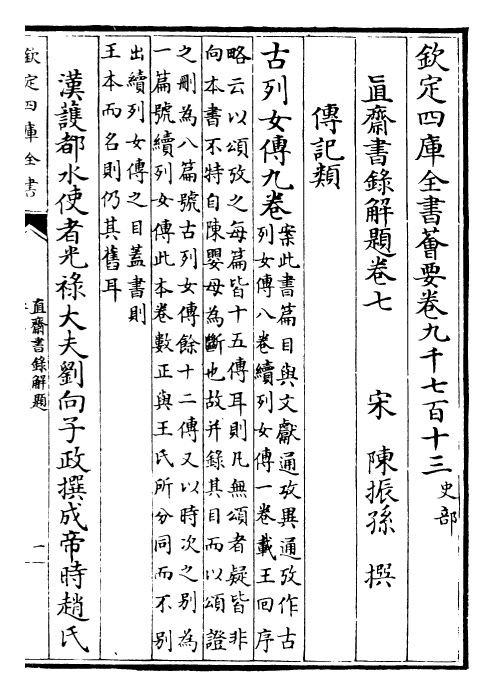 欽定四庫全書薈要卷九千七百十三 史部
直齋書錄解題卷七
宋 陳振孫 撰
傳記類
古列女傳九卷
案此書篇目與文獻通攷異通攷作古
列女傳八卷續列女傳一卷載王回序
略云以頌攷之每篇皆十五傳耳則凡無頌者疑皆非
向本書不特自陳嬰母為斷也故并錄其目而以頌證
之刪為八篇號古列女傳餘十二傳又以時次之别為
一篇號續列女傳此本卷數正與王氏所分同而不别
出續列女傳之目蓋書則
王本而名則仍其舊耳
漢護都水使者光祿大夫劉向子政撰成帝時趙氏
欽定四庫全書
直齋書錄解題
一